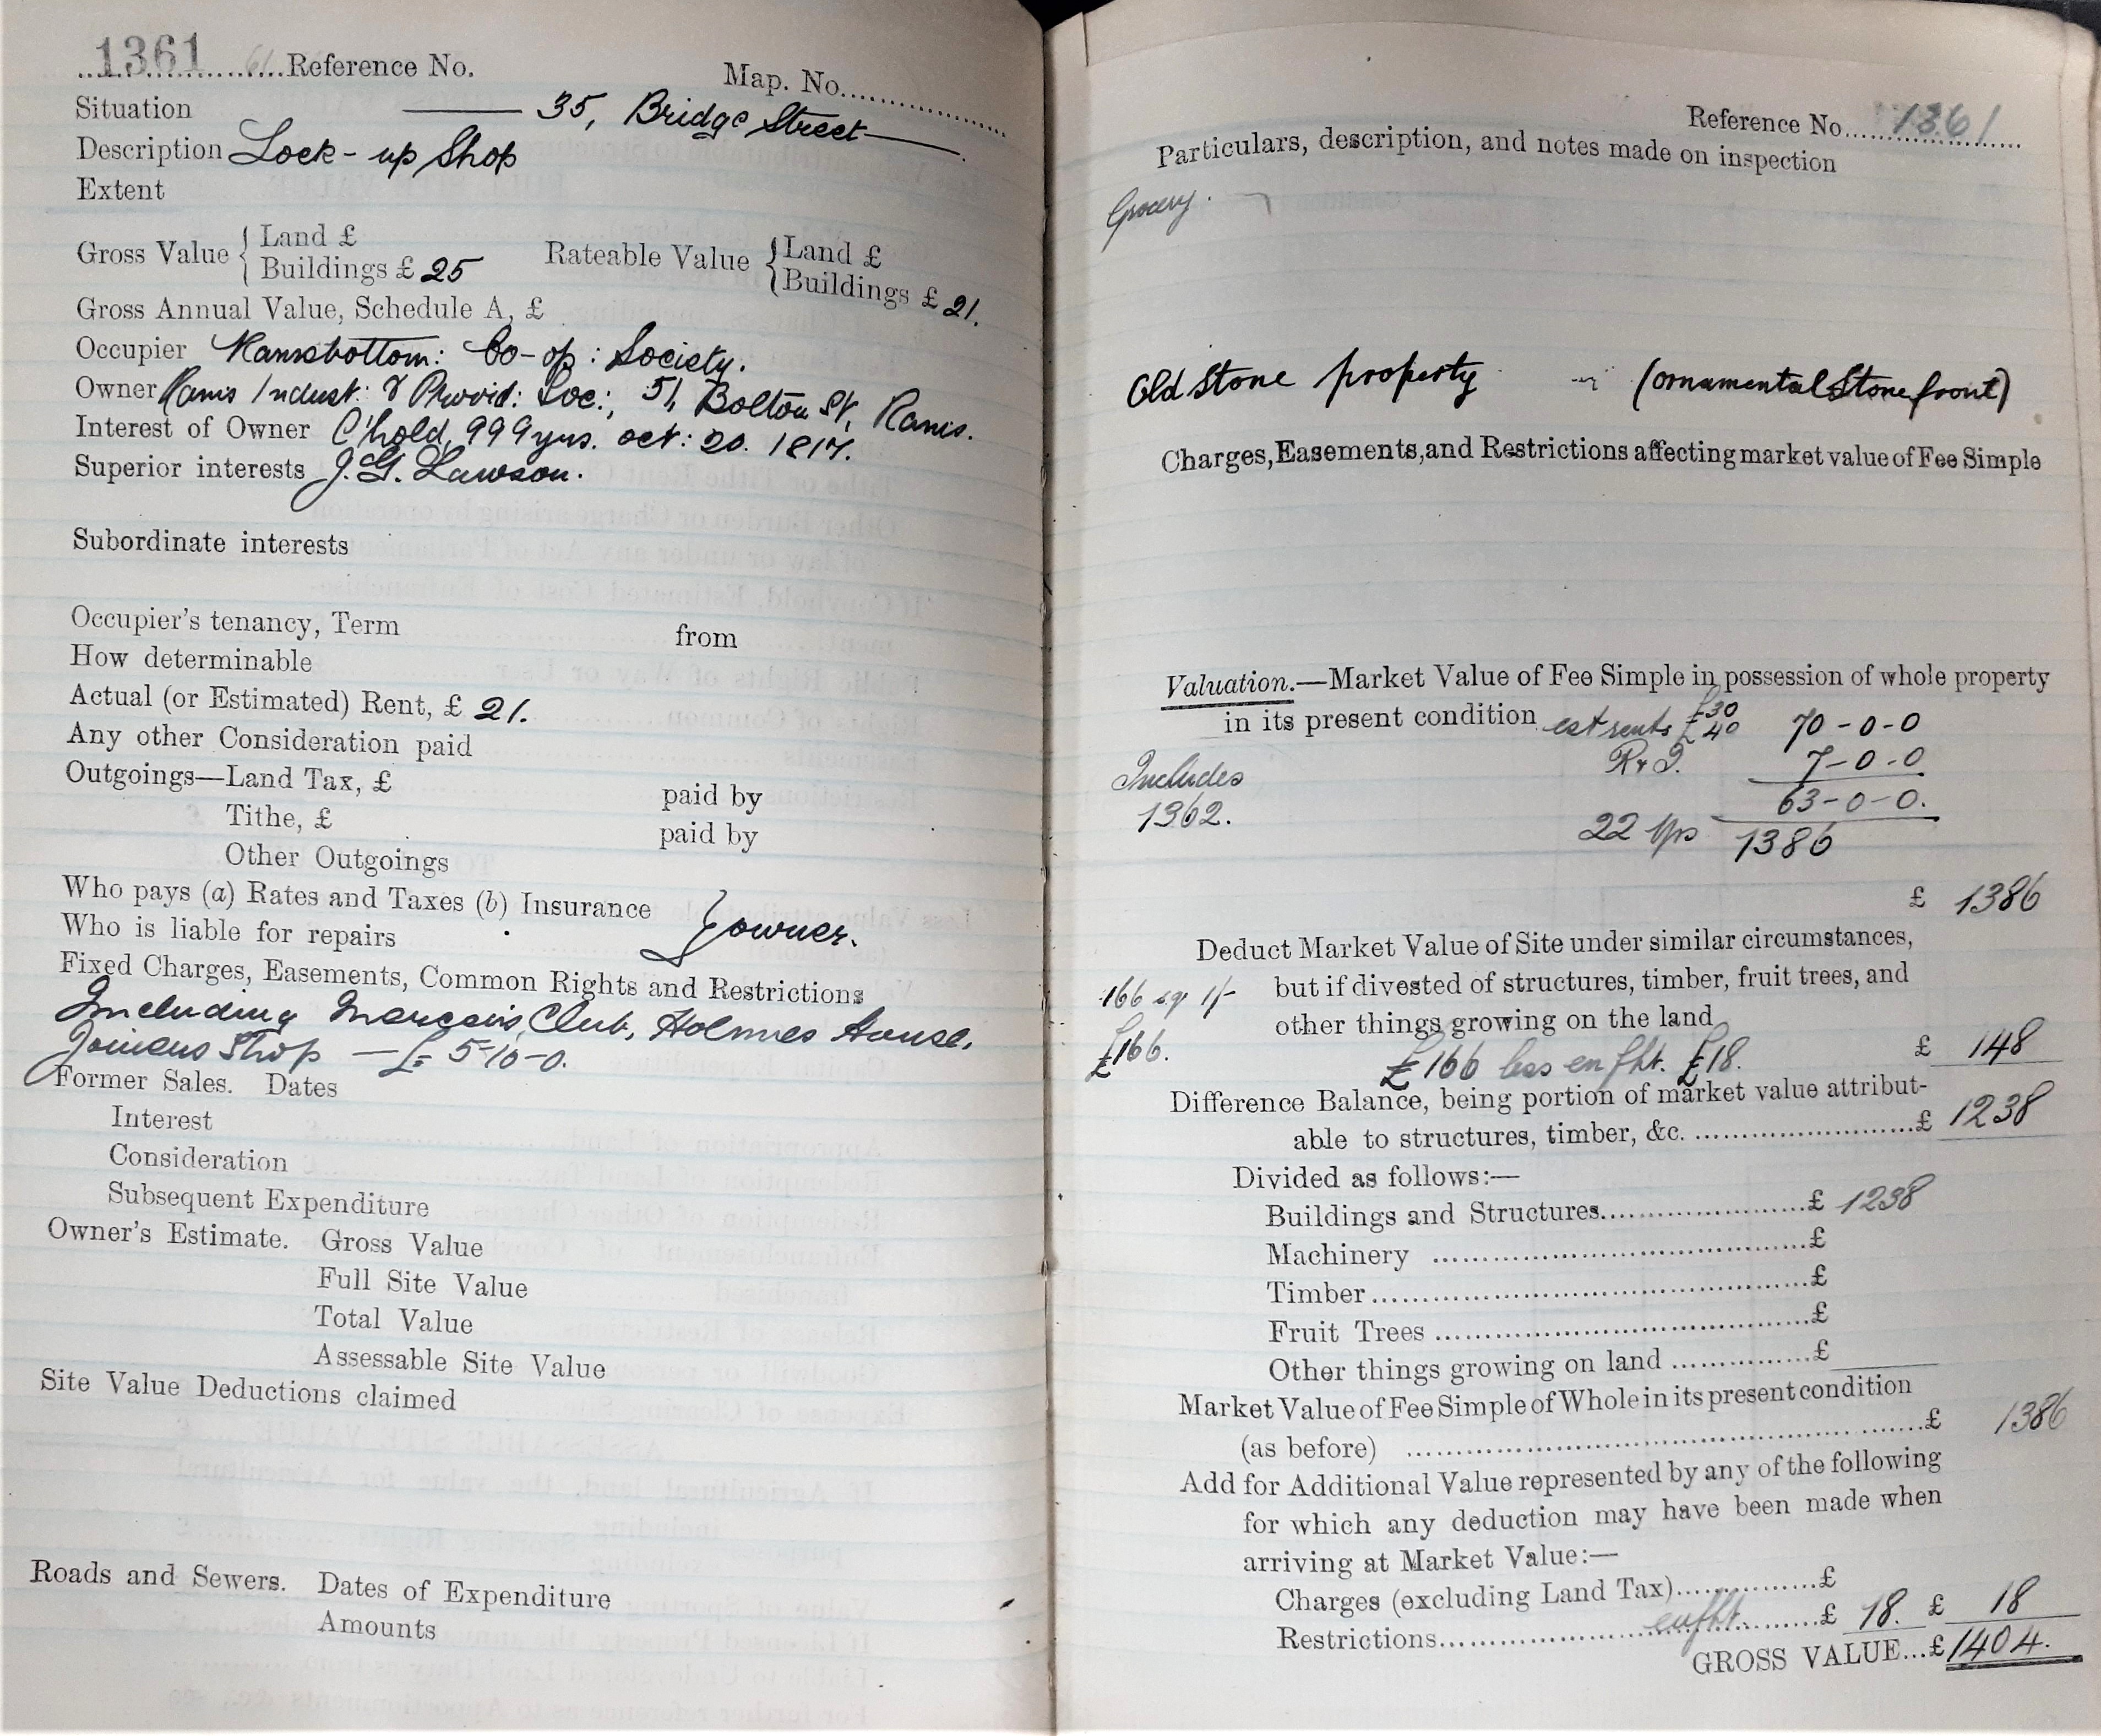 1361 Reference No. Map. No.
Situation 35, Bridge Street
Description Lock-up Shop
Extent
Gross Value { Land £ Rateable Value { Land £
Buildings £ 25 Buildings £ 21.
Gross Annual Value, Schedule A, £
Occupier Ramsbottom: Co-op: Society.
Owner Rams Indust: & Provid: Soc:, 51, Bolton St, Rams.
Interest of Owner C'hold, 999 yrs. oct: 20. 1817.
Superior interests J. G. Lawson.
Subordinate interests
Occupier's tenancy, Term from
How determinable
Actual (or Estimated) Rent, £ 21.
Any other Consideration paid
Outgoings—Land Tax, £ paid by
Tithe, £ paid by
Other Outgoings
Who pays (a) Rates and Taxes (b) Insurance } owner.
Who is liable for repairs
Fixed Charges, Easements, Common Rights and Restrictions
Including Club, Holmes House,
Joiners Shop — £ 5-10-0.
Former Sales. Dates
Interest
Consideration
Subsequent Expenditure
Owner's Estimate. Gross Value
Full Site Value
Total Value
Assessable Site Value
Site Value Deductions claimed
Roads and Sewers. Dates of Expenditure
Amounts
Reference No. 1361
Particulars, description, and notes made on inspection
Grocery.
Old Stone property (ornamental Stone front)
Charges, Easements, and Restrictions affecting market value of Fee Simple
Valuation.—Market Value of Fee Simple in possession of whole property
in its present condition est rents £30
£40 70-0-0
Includes R & I. 7-0-0
1362. 63-0-0.
22 yrs 1386
£ 1386
Deduct Market Value of Site under similar circumstances,
166 sq 1/- but if divested of structures, timber, fruit trees, and
other things growing on the land
£166. £166 less enfht. £18. £ 148
Difference Balance, being portion of market value attribut-
able to structures, timber, &c. £ 1238
Divided as follows:—
Buildings and Structures £ 1238
Machinery £
Timber £
Fruit Trees £
Other things growing on land £
Market Value of Fee Simple of Whole in its present condition
(as before) £ 1386
Add for Additional Value represented by any of the following
for which any deduction may have been made when
arriving at Market Value:—
Charges (excluding Land Tax) £
Restrictions enfht. £ 18. £ 18
GROSS VALUE...£ 1404.